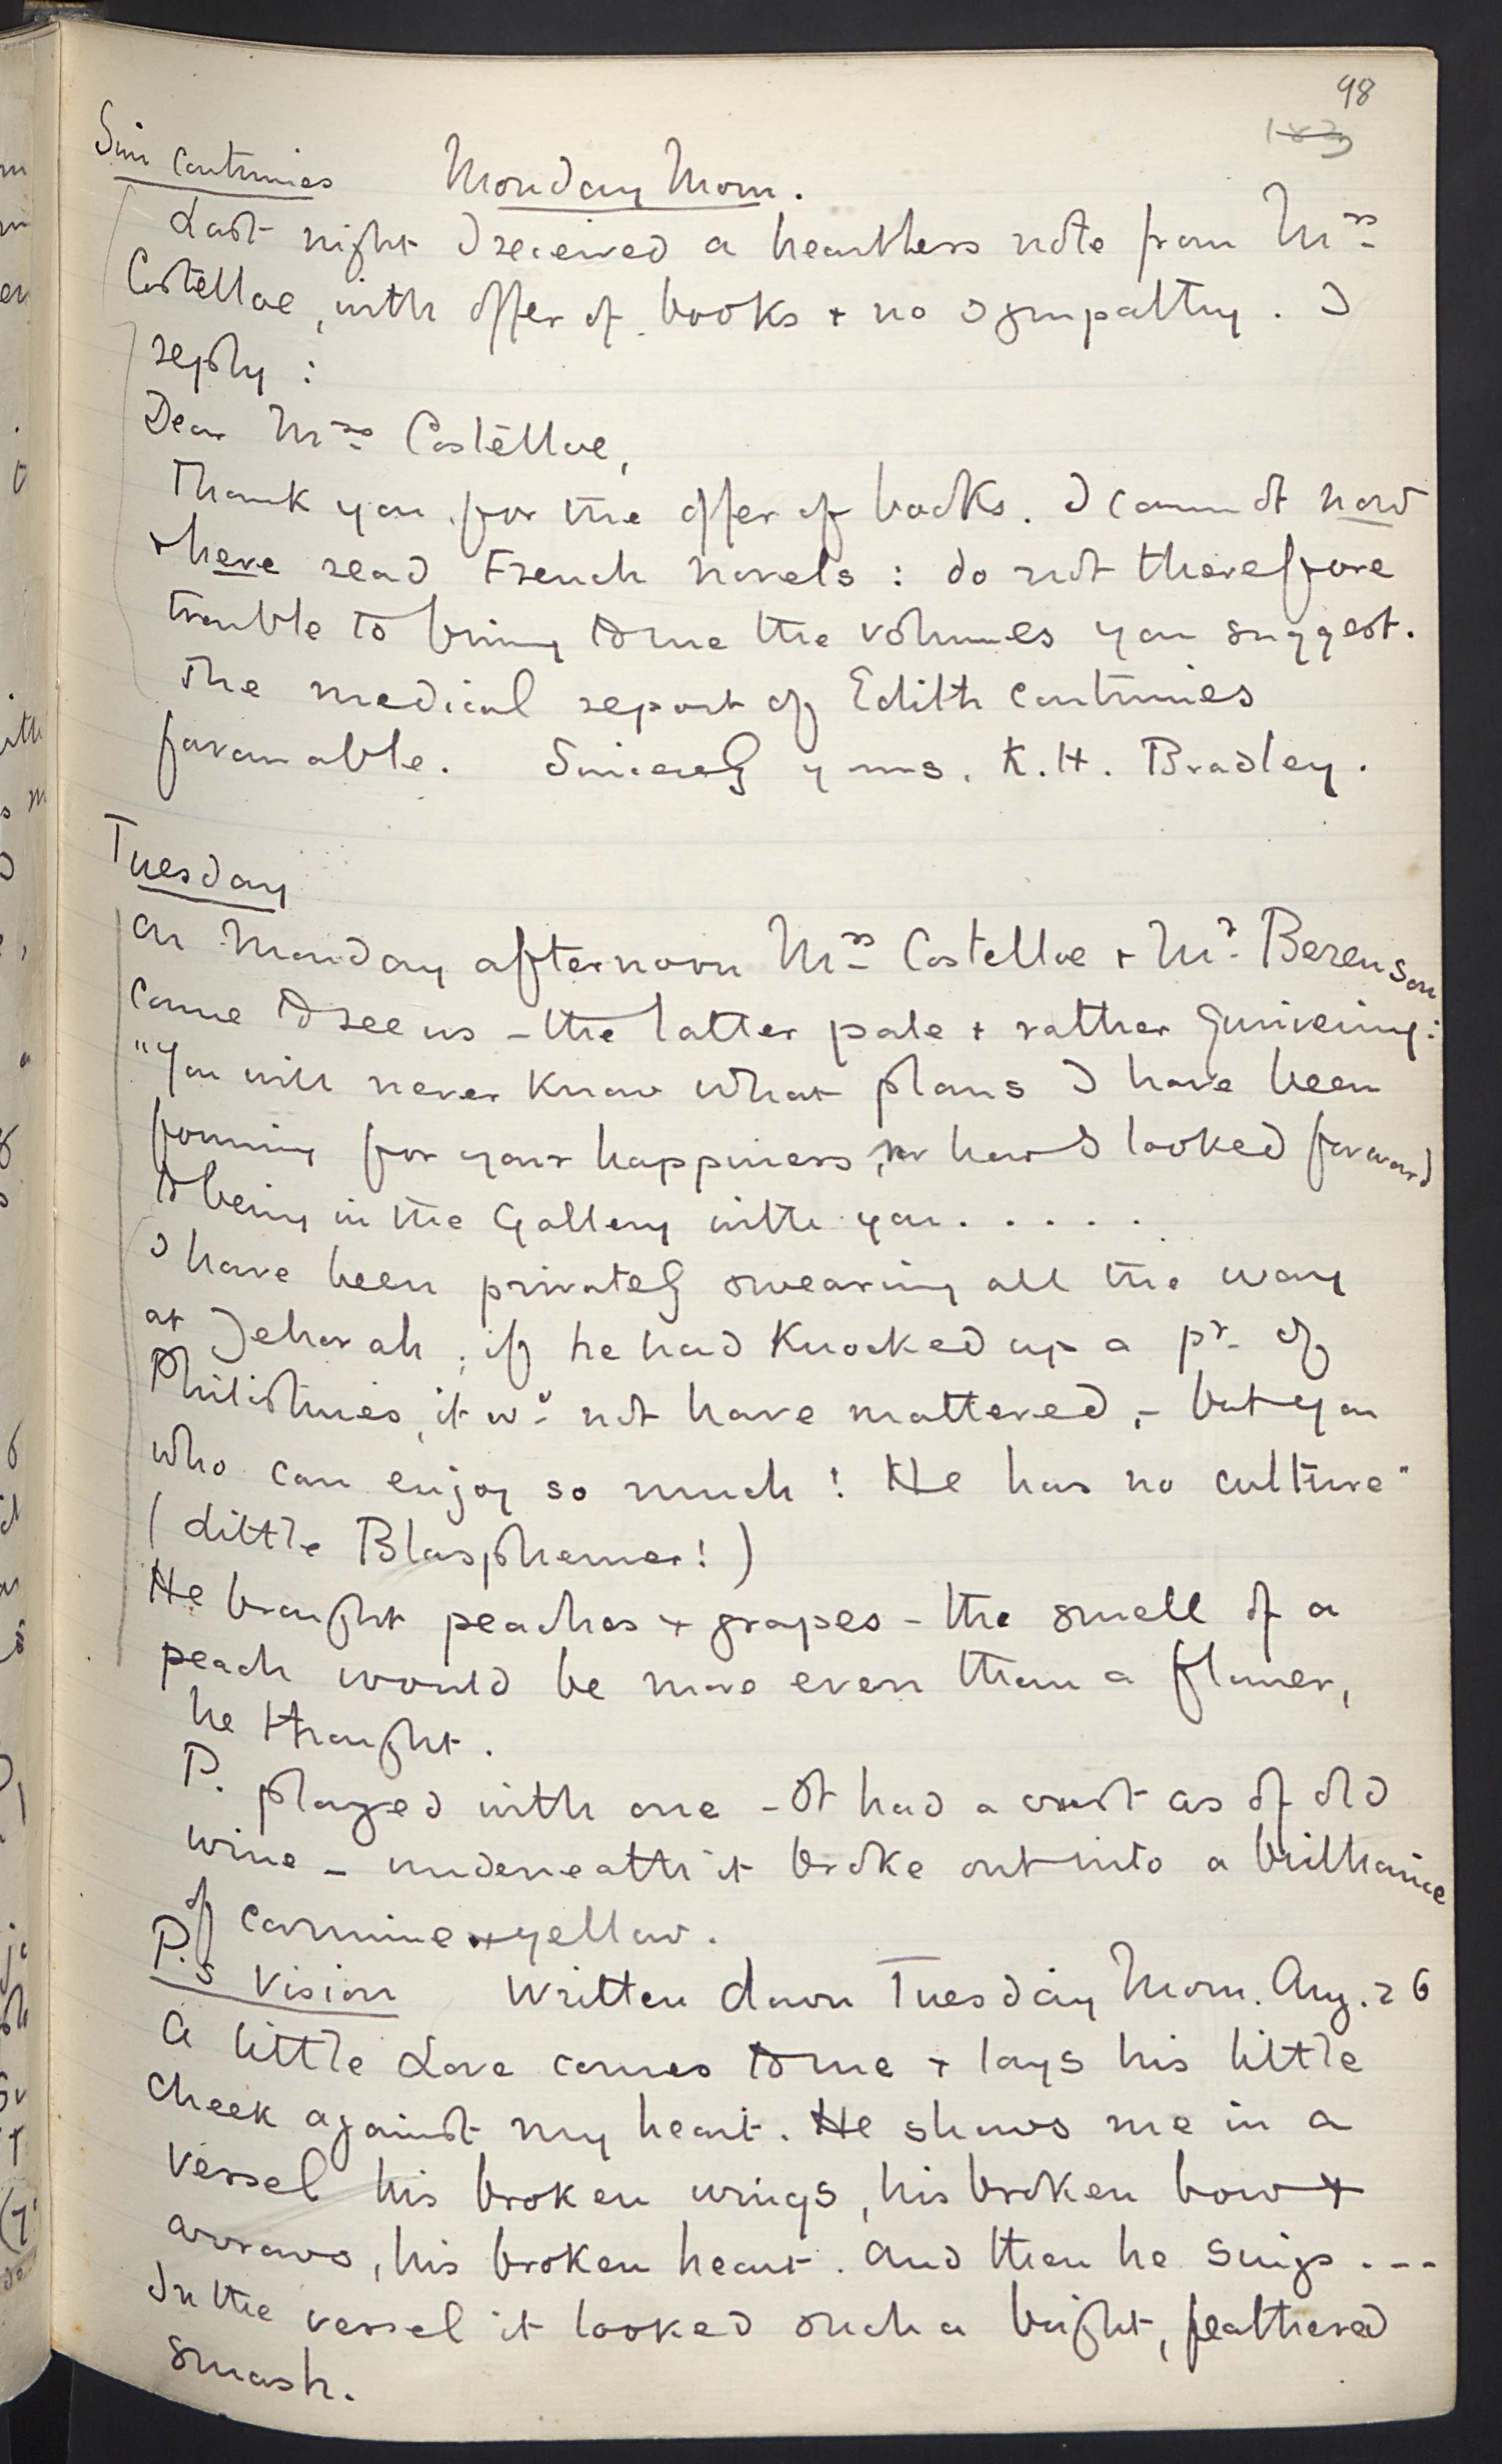 98
Sim continues Monday Morn.
Last night I received a heartless note from Mrs
Costelloe, with offer of books + no sympathy. I
reply:
Dear Mrs Costelloe,
Thank you for the offer of books. I cannot now
+ here read French novels: do not therefore
trouble to bring to me the volumes you suggest.
The medical report of Edith continues
favourable. Sincerely yours, K. H. Bradley.
Tuesday
On Monday afternoon Mrs Costelloe + Mr Berenson
came to see us – the latter pale + rather quivering:
"You will never know what plans I have been
forming for your happiness, nor how I looked forward
to being in the Gallery with you. . . . .
I have been privately swearing all the way
at Jehovah; if he had knocked up a pr. of
Philistines, it wd not have mattered, – but you
who can enjoy so much! He has no culture"
(Little Blasphemer!)
He brought peaches + grapes – the smell of a
peach would be more even than a flower,
he thought.
P. played with one – It had a crust as of old
wine – underneath it broke out into a brilliance
of carmine + yellow.
P.'s Vision Written down Tuesday Morn. Aug. 26
A little Love comes to me + lays his little
cheek against my heart. He shows me in a
vessel his broken wings, his broken bow +
arrows, his broken heart. And then he sings . . .
In the vessel it looked such a bright, feathered
smash.